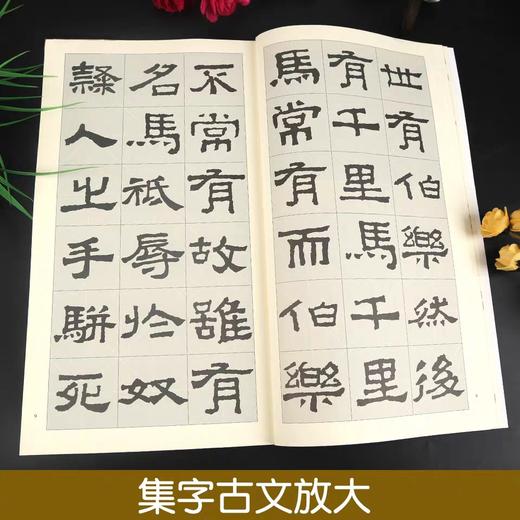 世有伯樂然後
有千里馬千里
馬常有而伯樂
不常有故雖有
名馬祇辱於奴
隸人之手駢死
集字古文放大